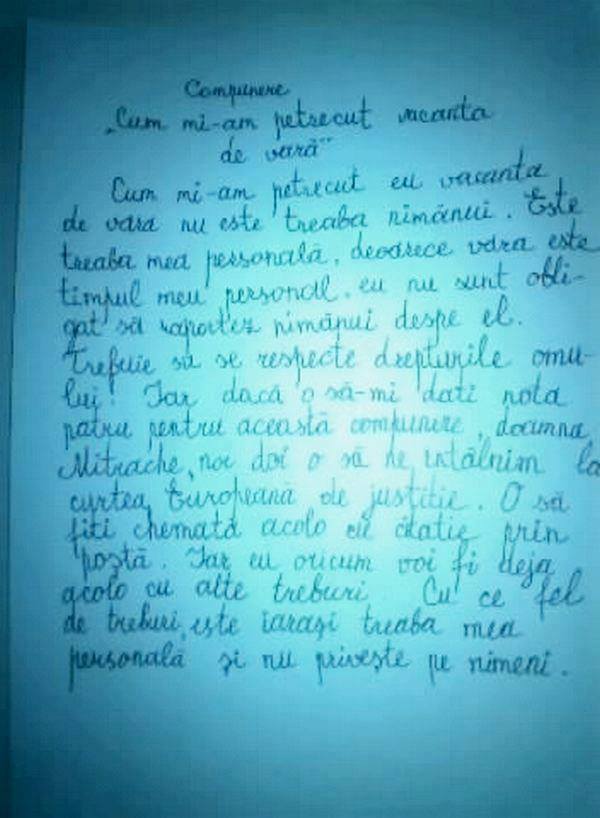 Compunere
„Cum mi-am petrecut vacanta
de vară"
Cum mi-am petrecut eu vacanta
de vara nu este treaba nimănui. Este
treaba mea personală, deoarece vara este
timpul meu personal. eu nu sunt obli-
gat să raportez nimănui despe el.
Trebuie să se respecte drepturile omu-
lui! Iar dacă o să-mi dati nota
patru pentru această compunere, doamna
Mitrache, noi doi o să ne intâlnim la
curtea Europeană de justitie. O să
fiti chemată acolo cu citatie prin
poștă. Iar eu oricum voi fi deja
acolo cu alte treburi Cu ce fel
de treburi, este iarași treaba mea
personală și nu privește pe nimeni.